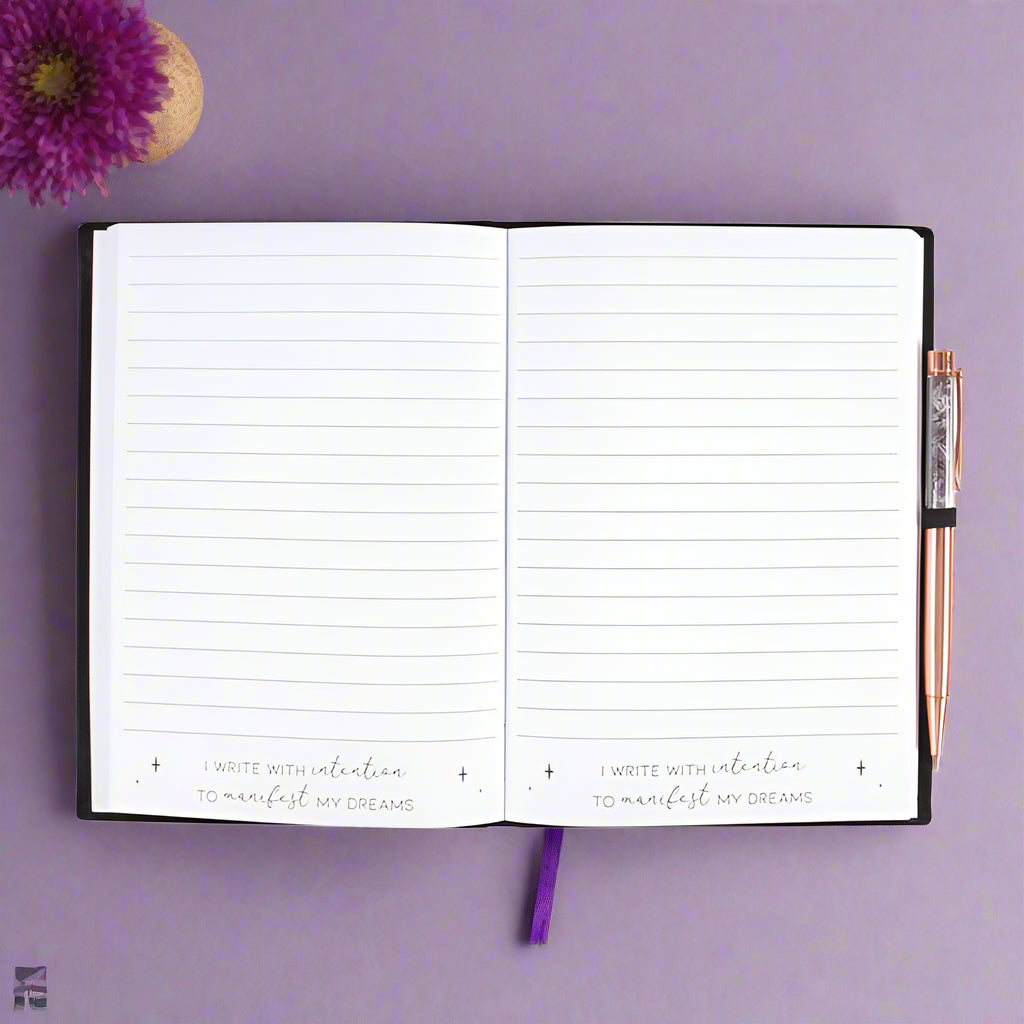 I WRITE WITH intention
TO manifest MY DREAMS
I WRITE WITH intention
TO manifest MY DREAMS